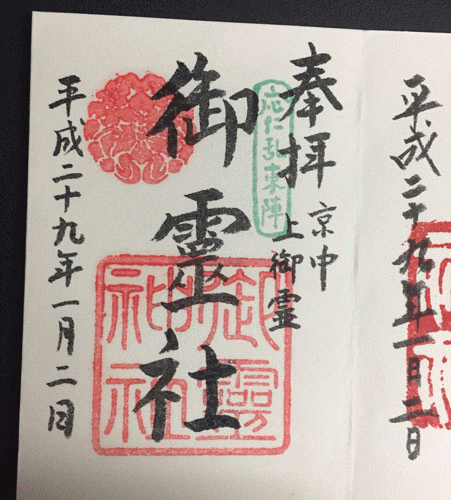 平成二十九年一月二日
奉拝
京中
上御霊
応仁乱東陣
御靈社
平成二十九年一月二日